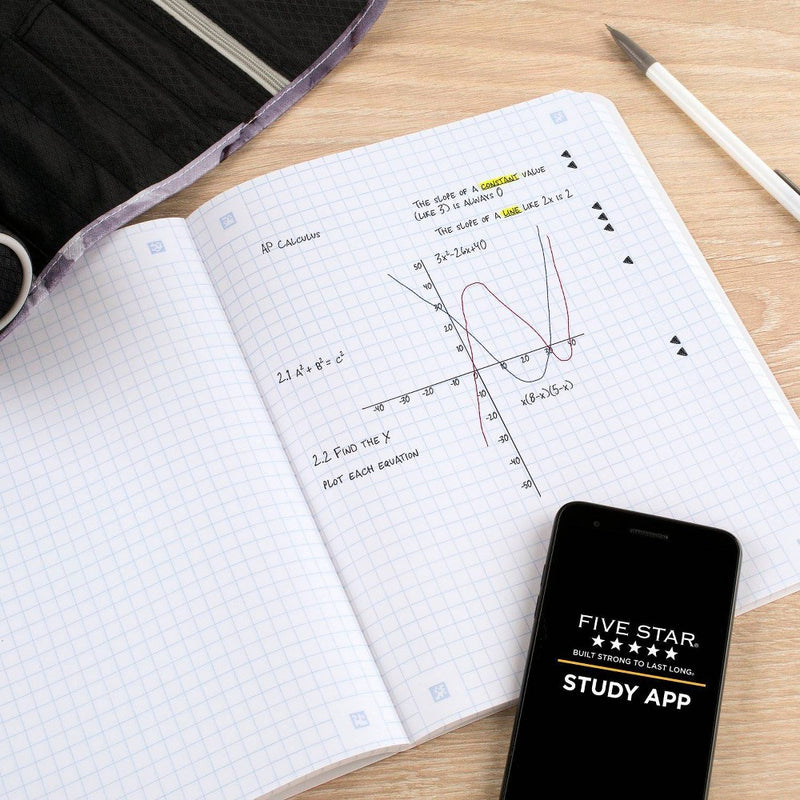 AP CALCULUS
THE SLOPE OF A CONSTANT VALUE
(LIKE 3) IS ALWAYS 0
THE SLOPE OF A LINE LIKE 2X IS 2
3x²-26x+40
50
40
30
20
10
-40 -30 -20 -10 0 10 20 30 40
-10
-20
-30
-40
-50
x(8-x)(5-x)
2.1 A²+B²=C²
2.2 FIND THE X
PLOT EACH EQUATION
FIVE STAR®
BUILT STRONG TO LAST LONG®
STUDY APP